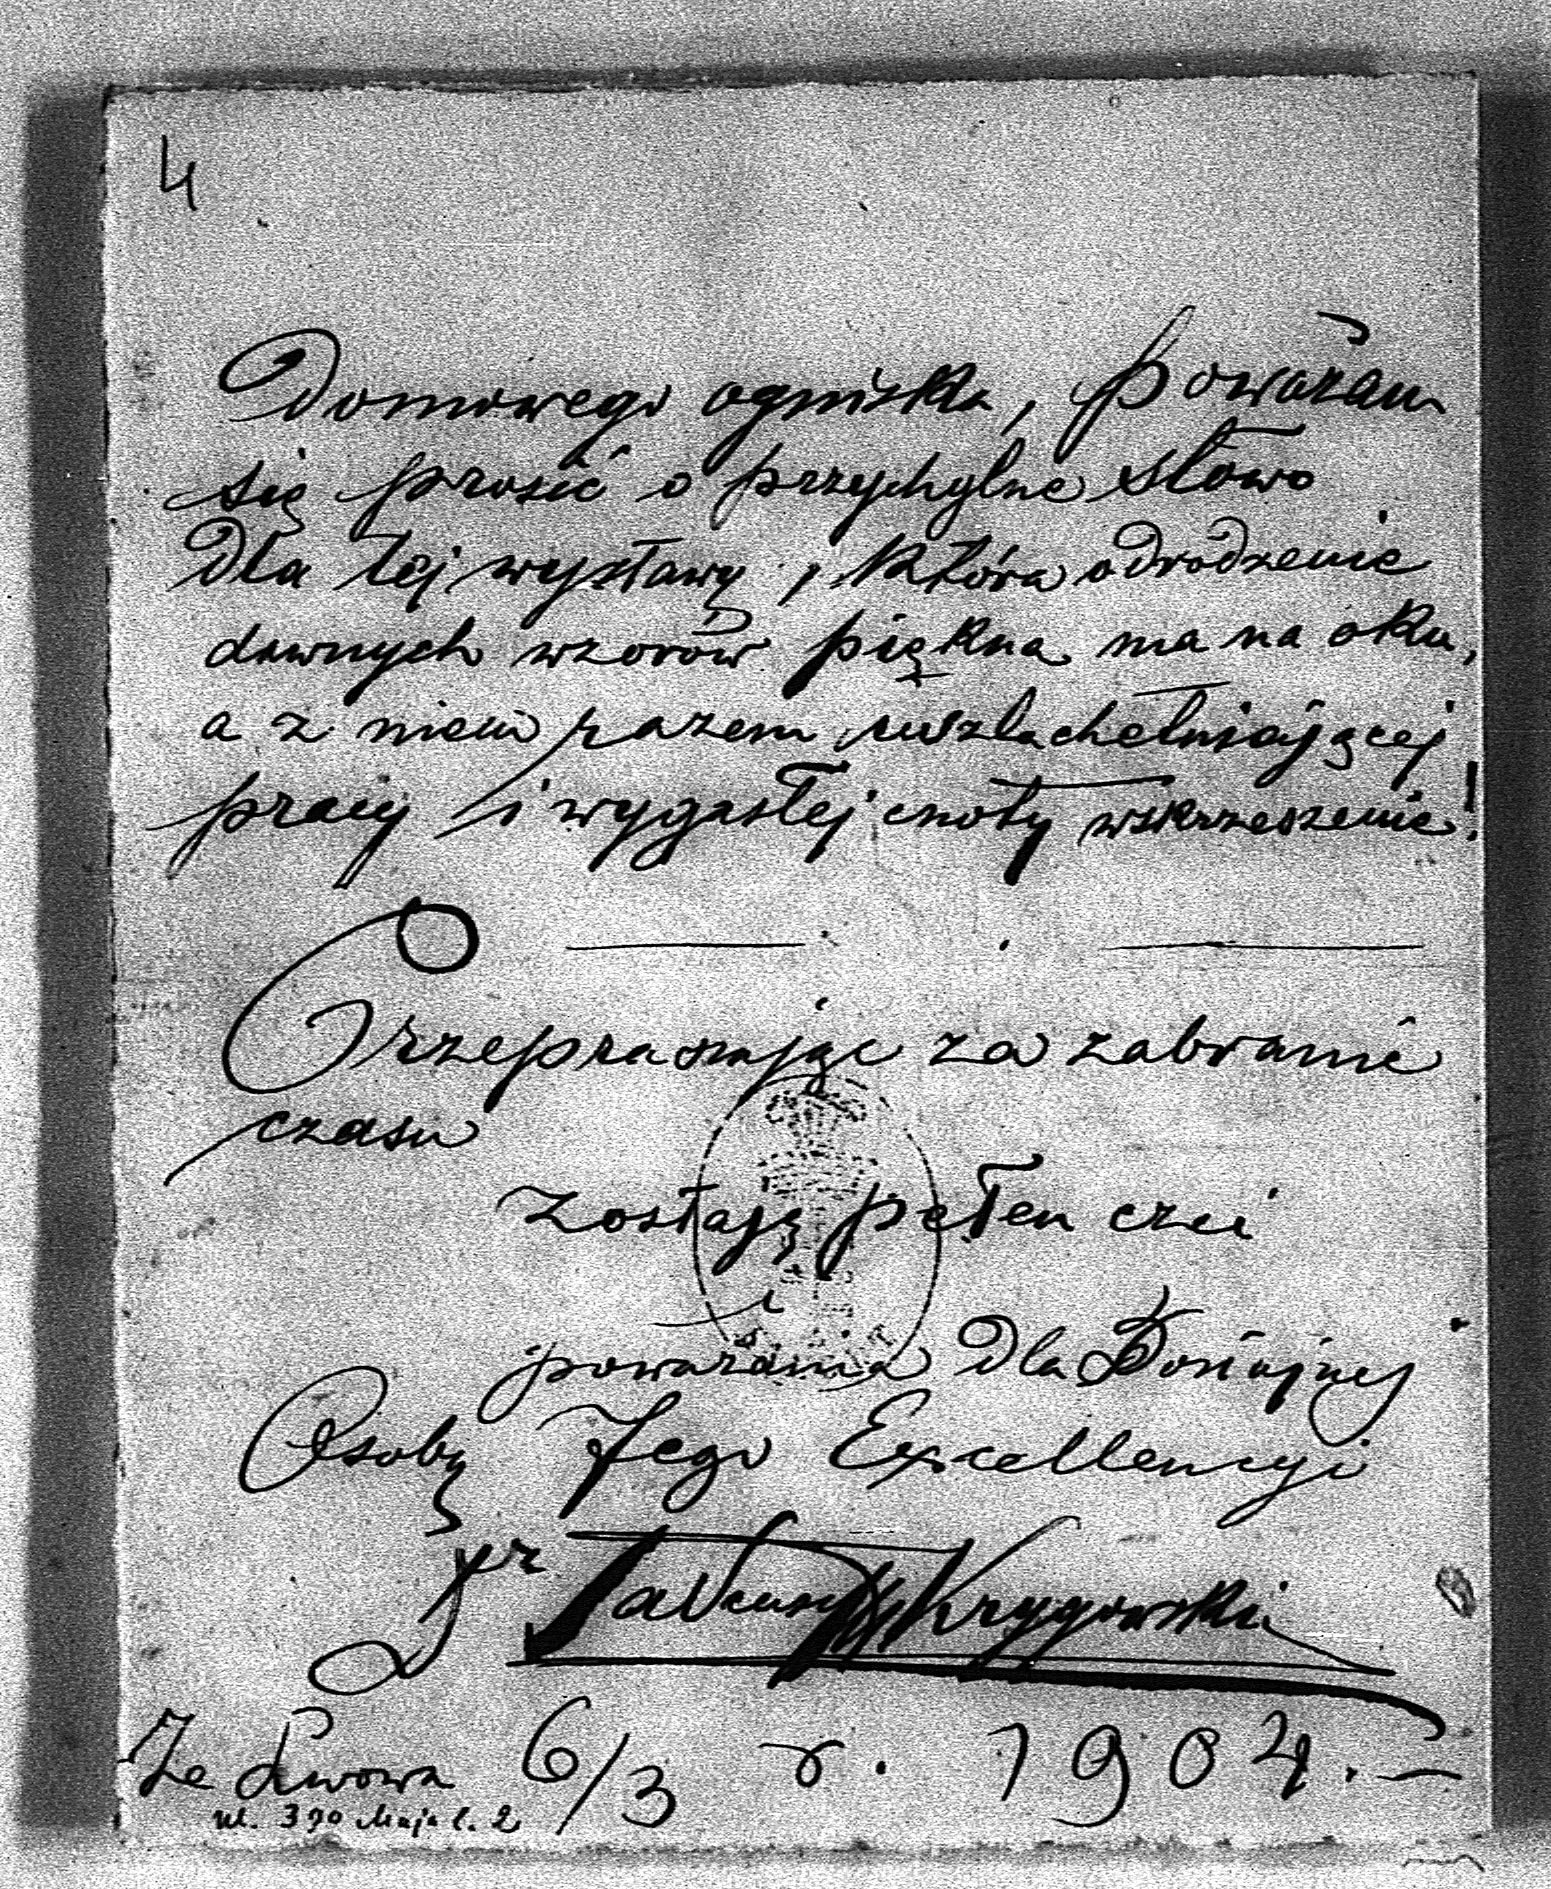 4
Domowego ogniska, poważam
się prosić o przychylne słowo
dla tej wystawy, która odrodzenie
dawnych wzorów piękna ma na oku,
a z niem razem uszlachetniającej
pracy i wygasłej cnoty wskrzeszenie!
Przepraszając za zabranie
czasu
zostaję pełen czci
i
poważania dla Dostojnej
Osoby Jego Excellencyi
Dr Tadeusz Krygowski
Ze Lwowa 6/3 r. 1904.
ul. 3go Maja l. 2